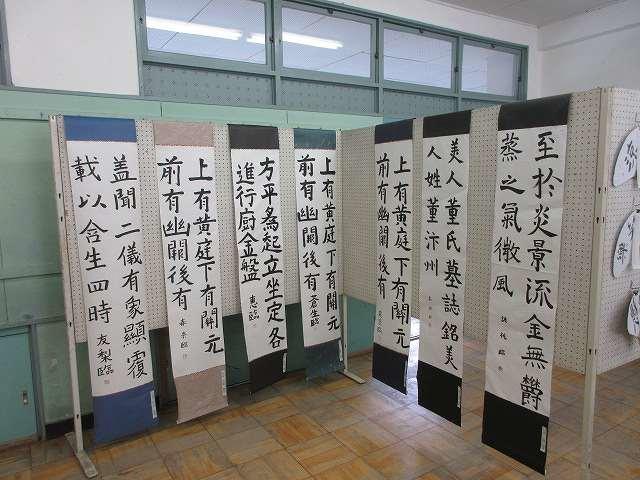 盖聞二儀有象顯覆
載以含生四時
友梨臨
上有黄庭下有關元
前有幽闕後有
方平為起立坐定各
進行厨金盤
恵臨
上有黄庭下有關元
前有幽闕後有
蒼生臨
上有黄庭下有關元
前有幽闕後有
美人董氏墓誌銘美
人姓董汴州
至於炎景流金無欝
蒸之氣微風